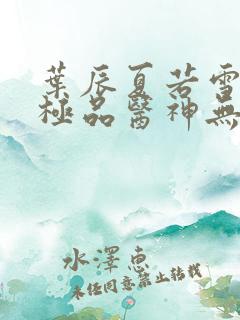 葉辰夏若雪
極品醫神無
水澤惠
未经同意禁止转载